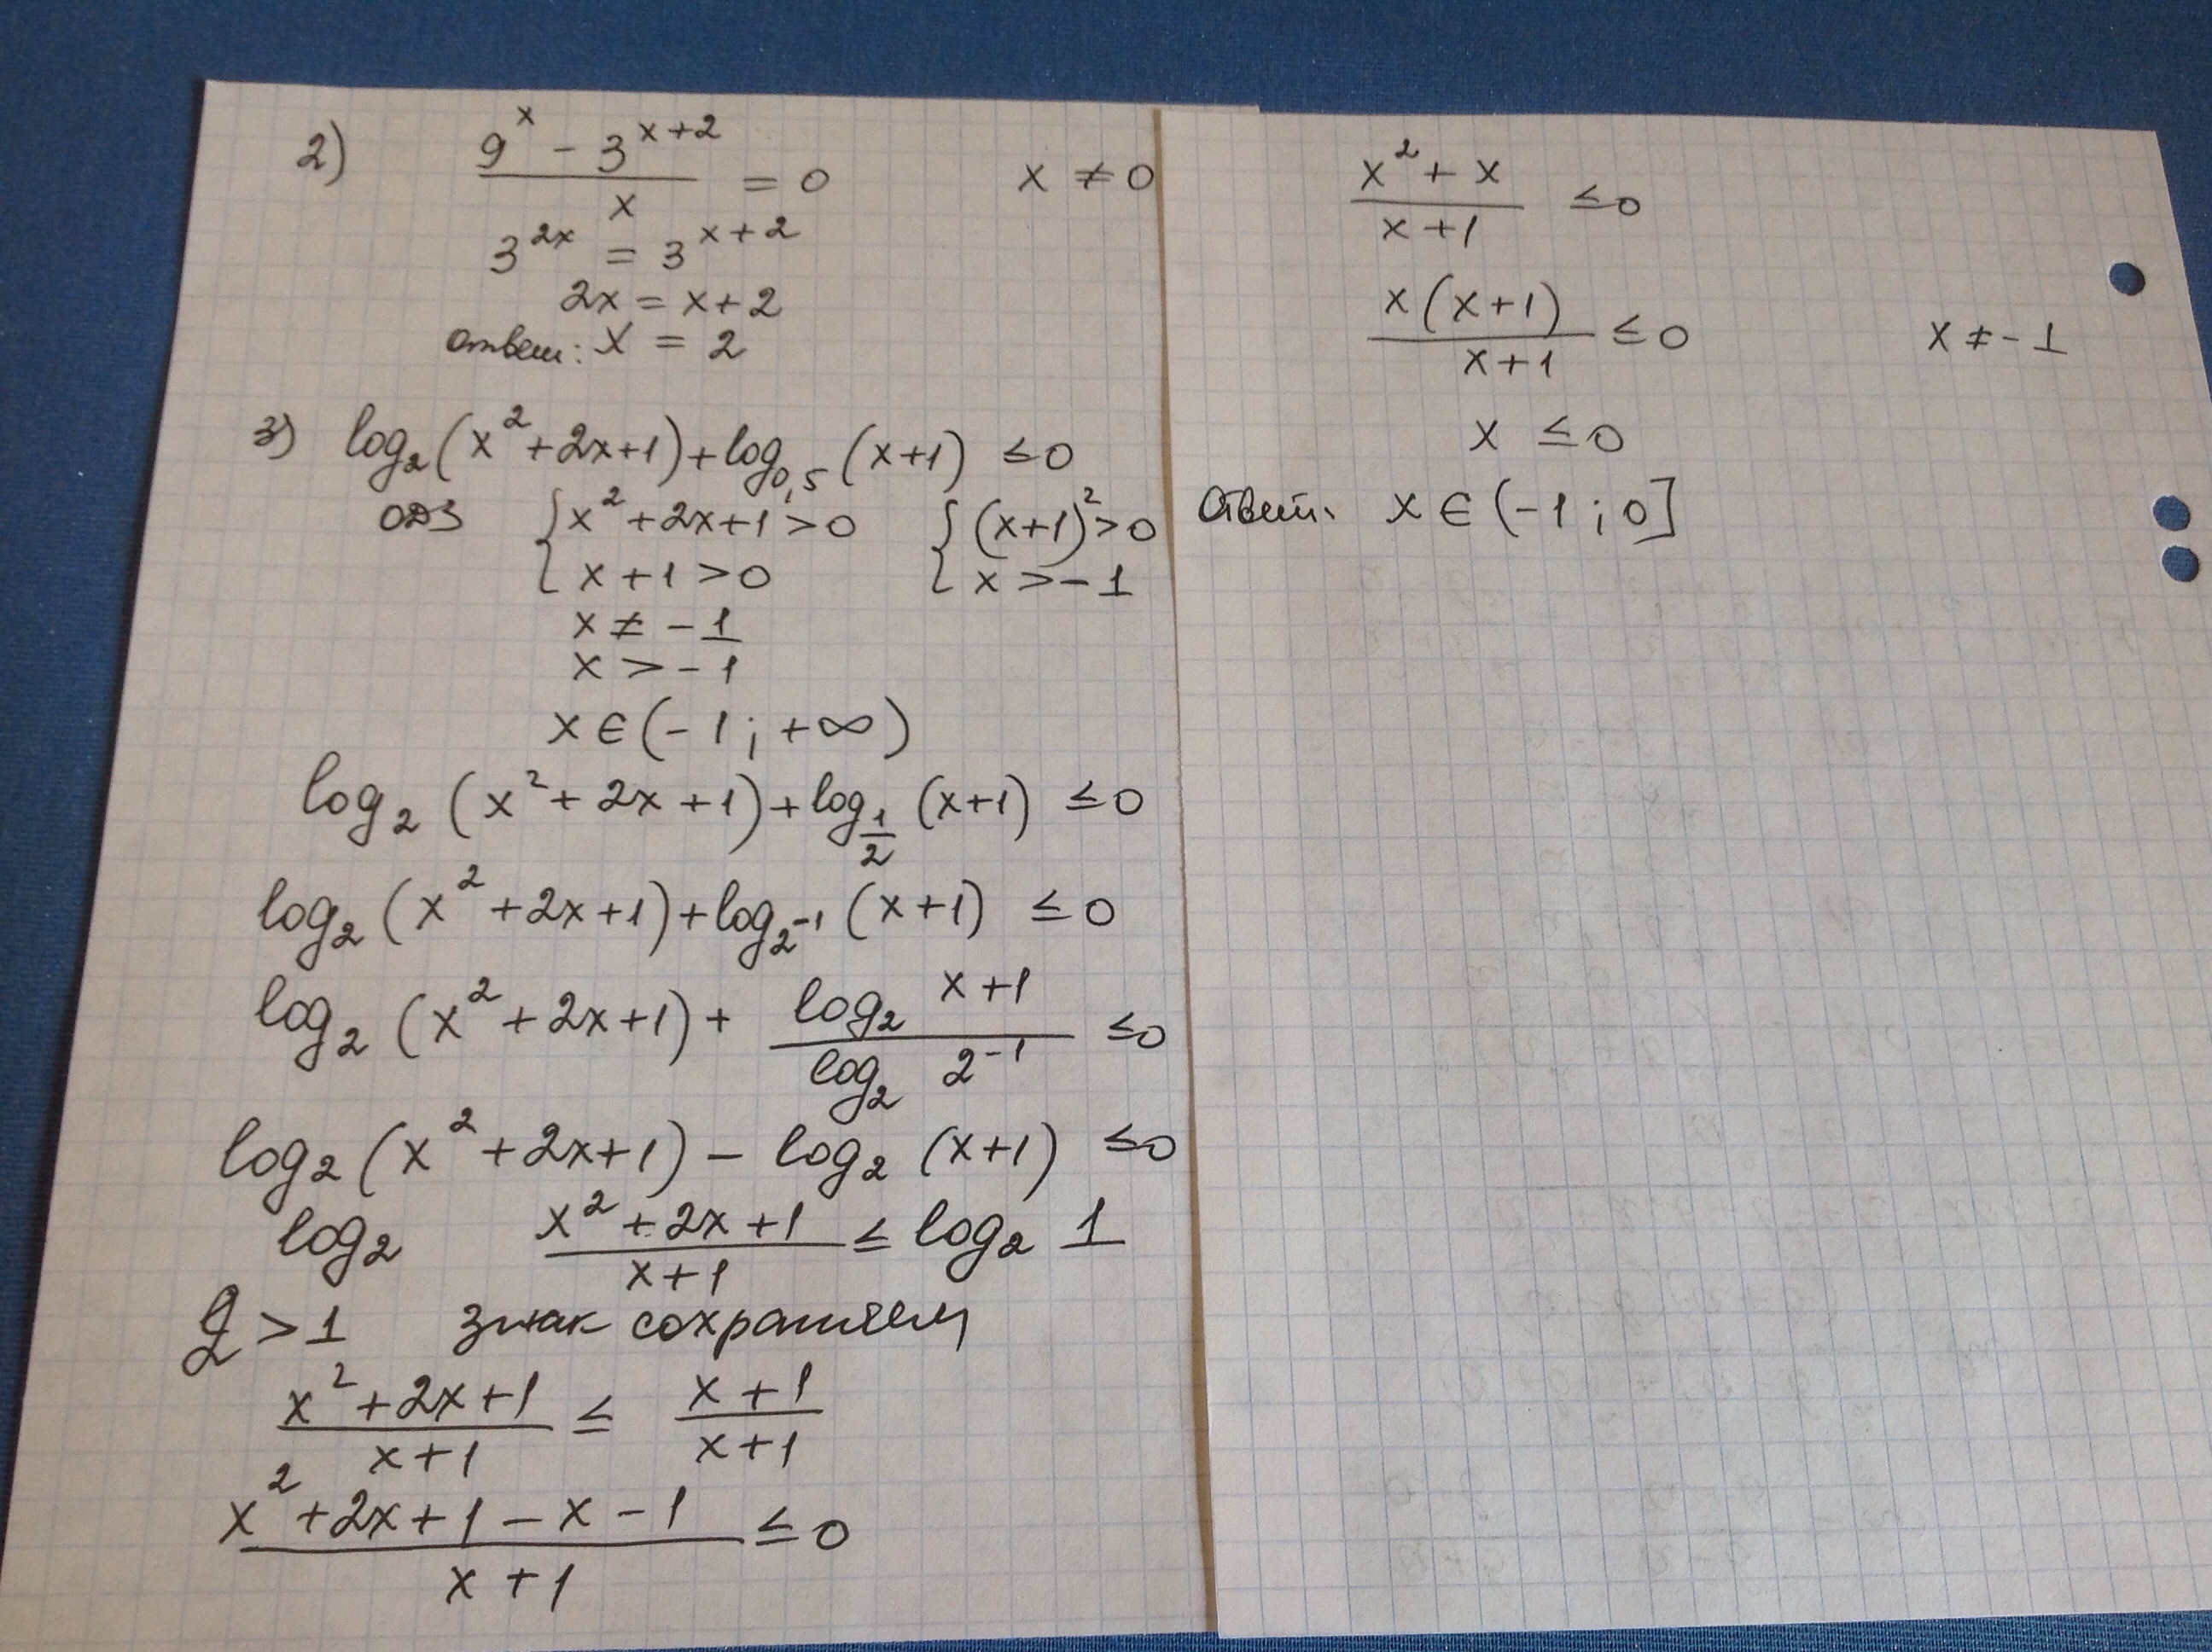 2) (9^x − 3^(x+2))/x = 0    x ≠ 0
3^(2x) = 3^(x+2)
2x = x+2
ответ: x = 2
3) log₂(x²+2x+1)+log₀,₅(x+1) ≤ 0
ОДЗ {x²+2x+1>0    {(x+1)²>0
{x+1>0    {x>−1
x ≠ −1
x > −1
x ∈ (−1; +∞)
log₂(x²+2x+1)+log_(1/2)(x+1) ≤ 0
log₂(x²+2x+1)+log_(2⁻¹)(x+1) ≤ 0
log₂(x²+2x+1)+(log₂ x+1)/(log₂ 2⁻¹) ≤ 0
log₂(x²+2x+1) − log₂(x+1) ≤ 0
log₂ (x²+2x+1)/(x+1) ≤ log₂ 1
2 > 1 знак сохраняем
(x²+2x+1)/(x+1) ≤ (x+1)/(x+1)
(x²+2x+1−x−1)/(x+1) ≤ 0
(x²+x)/(x+1) ≤ 0
(x(x+1))/(x+1) ≤ 0    x ≠ −1
x ≤ 0
Ответ. x ∈ (−1; 0]